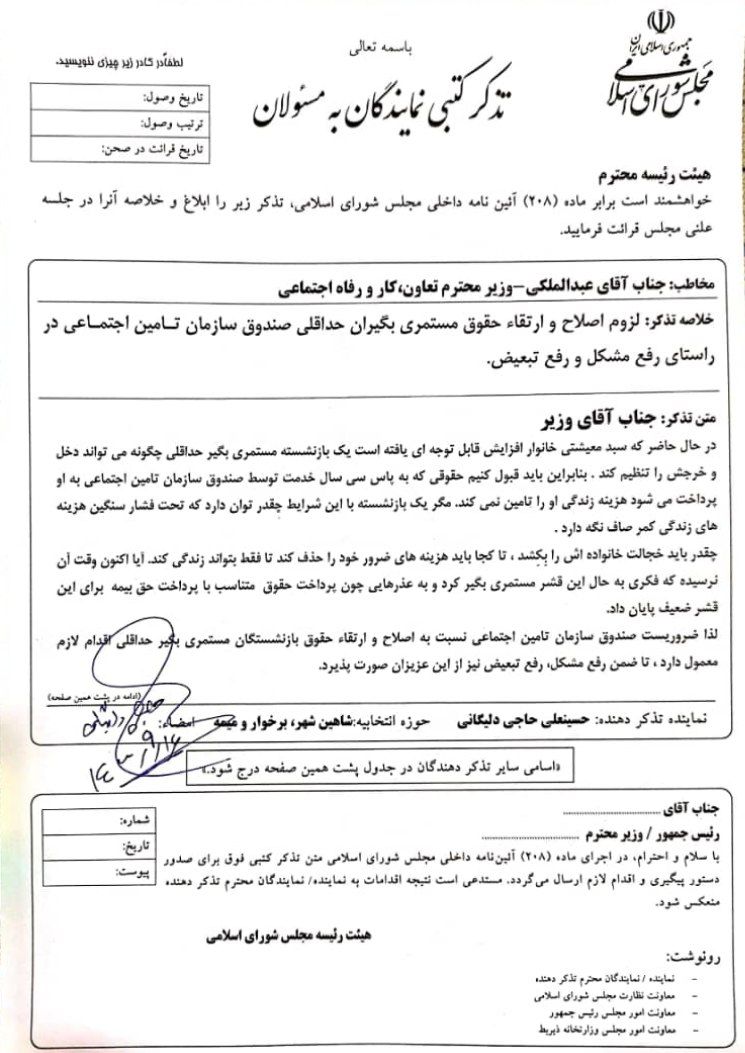 جمهوری اسلامی ایران
مجلس شورای اسلامی
باسمه تعالی
تذکر کتبی نمایندگان به مسئولان
لطفاً در کادر زیر چیزی ننویسید.
تاریخ وصول:
ترتیب وصول:
تاریخ قرائت در صحن:
هیئت رئیسه محترم
خواهشمند است برابر ماده (۲۰۸) آئین نامه داخلی مجلس شورای اسلامی، تذکر زیر را ابلاغ و خلاصه آنرا در جلسه
علنی مجلس قرائت فرمایید.
مخاطب: جناب آقای عبدالملکی-وزیر محترم تعاون،کار و رفاه اجتماعی
خلاصه تذکر: لزوم اصلاح و ارتقاء حقوق مستمری بگیران حداقلی صندوق سازمان تامین اجتماعی در
راستای رفع مشکل و رفع تبعیض.
متن تذکر: جناب آقای وزیر
در حال حاضر که سبد معیشتی خانوار افزایش قابل توجه ای یافته است یک بازنشسته مستمری بگیر حداقلی چگونه می تواند دخل
و خرجش را تنظیم کند . بنابراین باید قبول کنیم حقوقی که به پاس سی سال خدمت توسط صندوق سازمان تامین اجتماعی به او
پرداخت می شود هزینه زندگی او را تامین نمی کند. مگر یک بازنشسته با این شرایط چقدر توان دارد که تحت فشار سنگین هزینه
های زندگی کمر صاف نگه دارد .
چقدر باید خجالت خانواده اش را بکشد ، تا کجا باید هزینه های ضرور خود را حذف کند تا فقط بتواند زندگی کند. آیا اکنون وقت آن
نرسیده که فکری به حال این قشر مستمری بگیر کرد و به عذرهایی چون پرداخت حقوق متناسب با پرداخت حق بیمه برای این
قشر ضعیف پایان داد.
لذا ضروریست صندوق سازمان تامین اجتماعی نسبت به اصلاح و ارتقاء حقوق بازنشستگان مستمری بگیر حداقلی اقدام لازم
معمول دارد ، تا ضمن رفع مشکل، رفع تبعیض نیز از این عزیزان صورت پذیرد.
(ادامه در پشت همین صفحه)
نماینده تذکر دهنده: حسینعلی حاجی دلیگانی حوزه انتخابیه:شاهین شهر، برخوار و میمه امضاء:
«اسامی سایر تذکر دهندگان در جدول پشت همین صفحه درج شود.»
جناب آقای ..............................
رئیس جمهور / وزیر محترم ..............................
شماره:
تاریخ:
پیوست:
با سلام و احترام، در اجرای ماده (۲۰۸) آئین‌نامه داخلی مجلس شورای اسلامی متن تذکر کتبی فوق برای صدور
دستور پیگیری و اقدام لازم ارسال می‌گردد. مستدعی است نتیجه اقدامات به نماینده/ نمایندگان محترم تذکر دهنده
منعکس شود.
هیئت رئیسه مجلس شورای اسلامی
رونوشت:
- نماینده / نمایندگان محترم تذکر دهنده
- معاونت نظارت مجلس شورای اسلامی
- معاونت امور مجلس رئیس جمهور
- معاونت امور مجلس وزارتخانه ذیربط